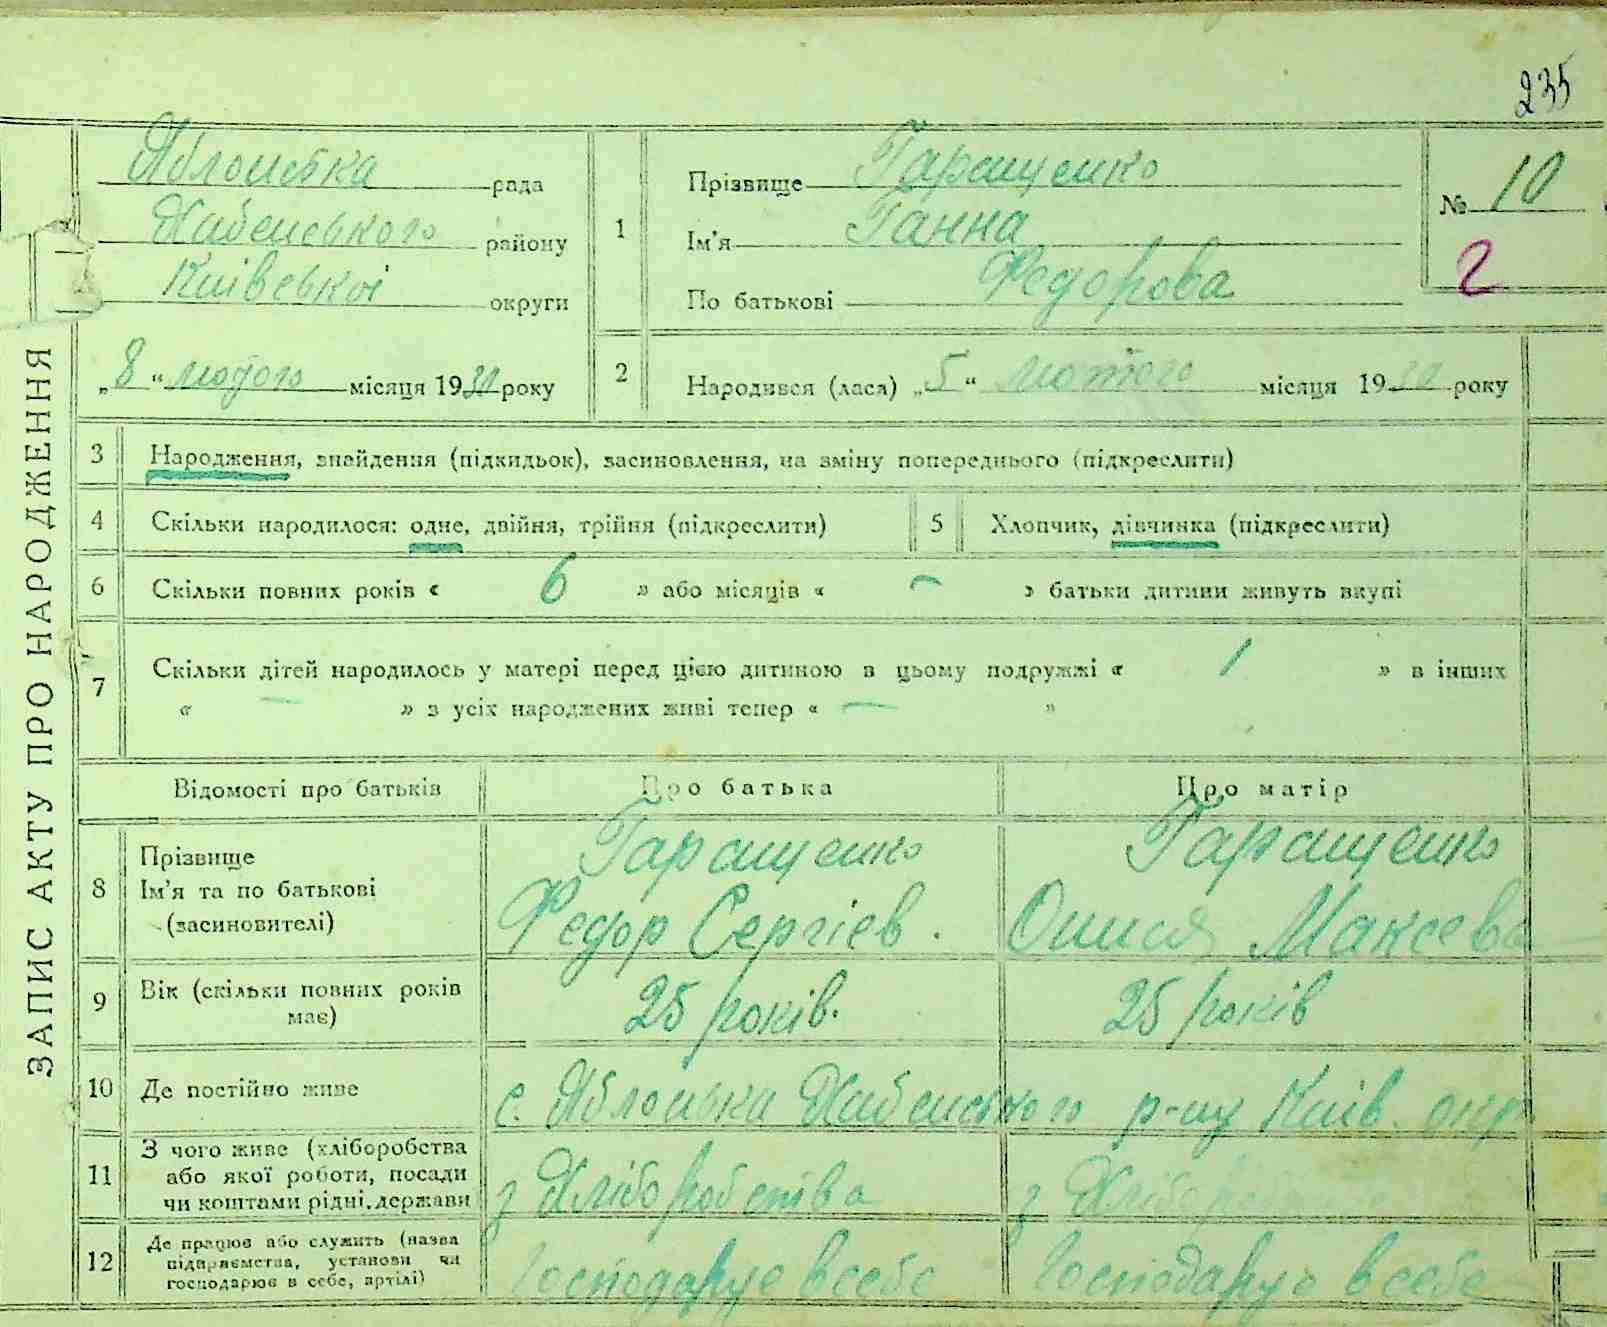 235
Яблонська рада
Хабенського району
Київської округи
„8“ лютого місяця 1930 року
1
Прізвище Гаращенко
Ім'я Ганна
По батькові Федорова
№ 10
2
2
Народився (лася) „5“ лютого місяця 1930 року
ЗАПИС АКТУ ПРО НАРОДЖЕННЯ
3 Народження, знайдення (підкидьок), засиновлення, на зміну попереднього (підкреслити)
4 Скільки народилося: одне, двійня, трійня (підкреслити) 5 Хлопчик, дівчинка (підкреслити)
6 Скільки повних років « 6 » або місяців « – » батьки дитини живуть вкупі
7 Скільки дітей народилось у матері перед цією дитиною в цьому подружжі « 1 » в інших
« – » з усіх народжених живі тепер « – »
Відомості про батьків Про батька Про матір
8 Прізвище
Ім'я та по батькові
(засиновителі)
Гаращенко
Федор Сергіев.
Гаращенко
Онися Максева
9 Вік (скільки повних років
має)
25 років.
25 років
10 Де постійно живе
с. Яблонька Хабенського р-ну Київ. окр
11 З чого живе (хліборобства
або якої роботи, посади
чи коштами рідні, держави
з Хліборобства
з Хлібороб
12 Де працює або служить (назва
підприємства, установи чи
господарює в себе, артілі)
Господарує в себе
Господарує в себе